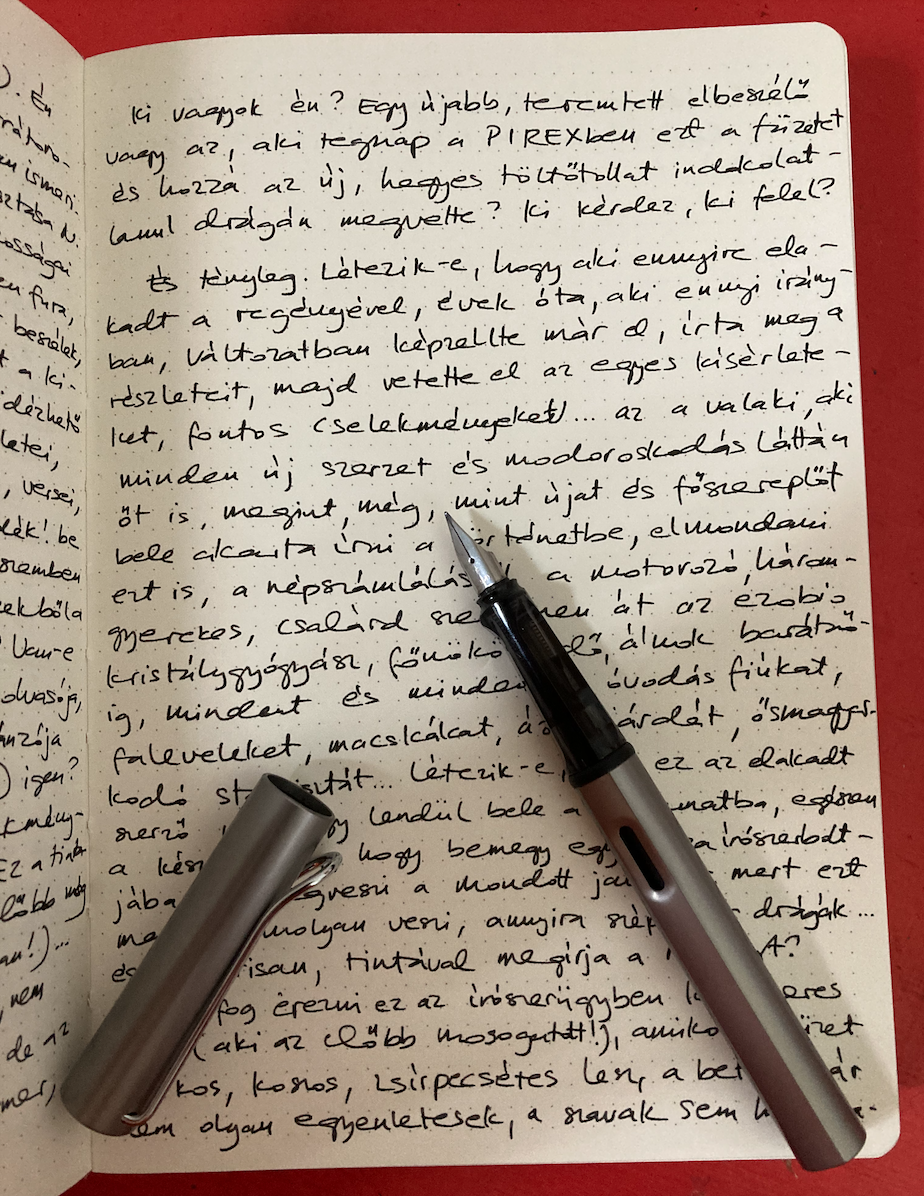 ). Én
ismeri
fura,
beszélek,
a ki-
idézhető
letei,
versei,
be
szemben
Van-e
olvasója,
igen?
Ez a tinta
előbb még
nem
de az
Ki vagyok én? Egy újabb, teremtett elbeszélő
vagy az, aki tegnap a PIREXben ezt a füzetet
és hozzá az új, hegyes töltőtollat indokolat-
lanul drágán megvette? Ki kérdez, ki felel?
És tényleg. Létezik-e, hogy aki ennyire ela-
kadt a regényével, évek óta, aki ennyi irány-
ban, változatban képzellte már el, írta meg a
részleteit, majd vetette el az egyes kísérlete-
ket, fontos cselekményeket... az a valaki, aki
minden új szerzet és modoroskodás láttán
őt is, megint, még, mint újat és főszereplőt
bele akarta írni a történetbe, elmondani
ezt is, a népszámlálás a motorozó, három-
gyerekes, családi át az ezobio
kristálygyógyász, álmok barátnő-
ig, mindent és minden óvodás fiúkat,
faleveleket, macskákat, ősmagyar-
kodó Létezik-e, ez az elakadt
szerző lendül bele a egészen
a hogy bemegy írószerbolt-
jába megveszi a mondott mert ezt
komolyan veszi, annyira drágák...
és tintával megírja a
fog érezni ez az írószerügyben
(aki az előbb mosogatott!), füzet
kos, koszos, zsírpecsétes lesz, a
nem olyan egyenletesek, a szavak sem